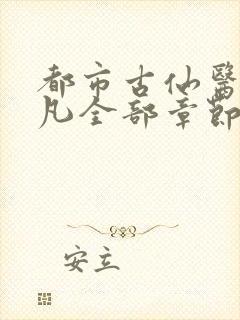 都市古仙醫
凡全部章節
安立